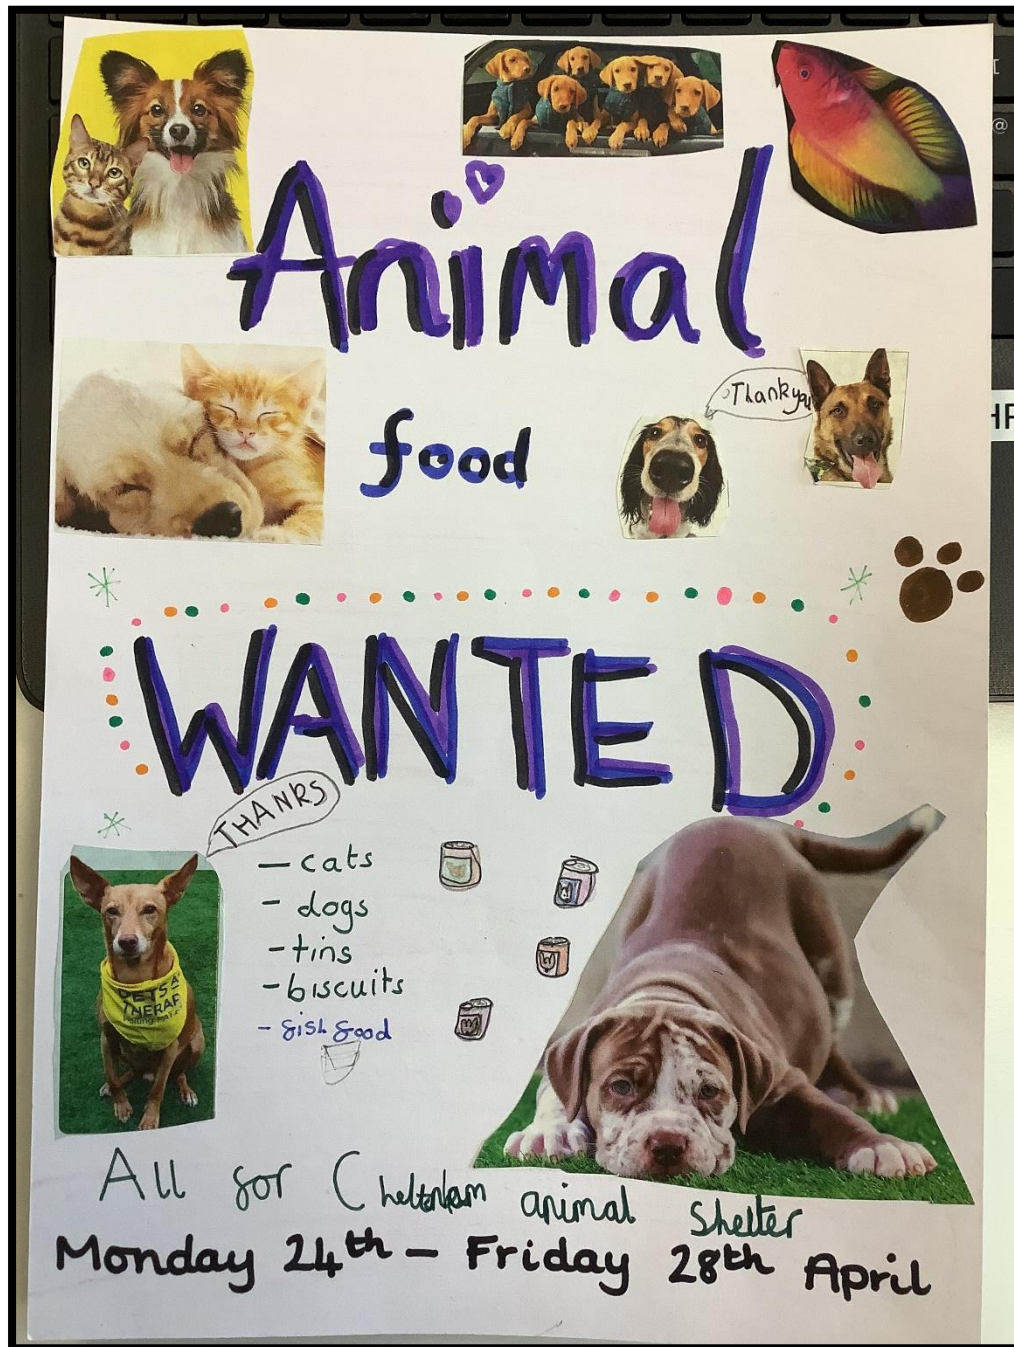 Animal
Thankyou
food
WANTED
THANKS
- cats
- dogs
- tins
- biscuits
- fish food
PETS A
THERAP
All for Cheltenham animal shelter
Monday 24th - Friday 28th April